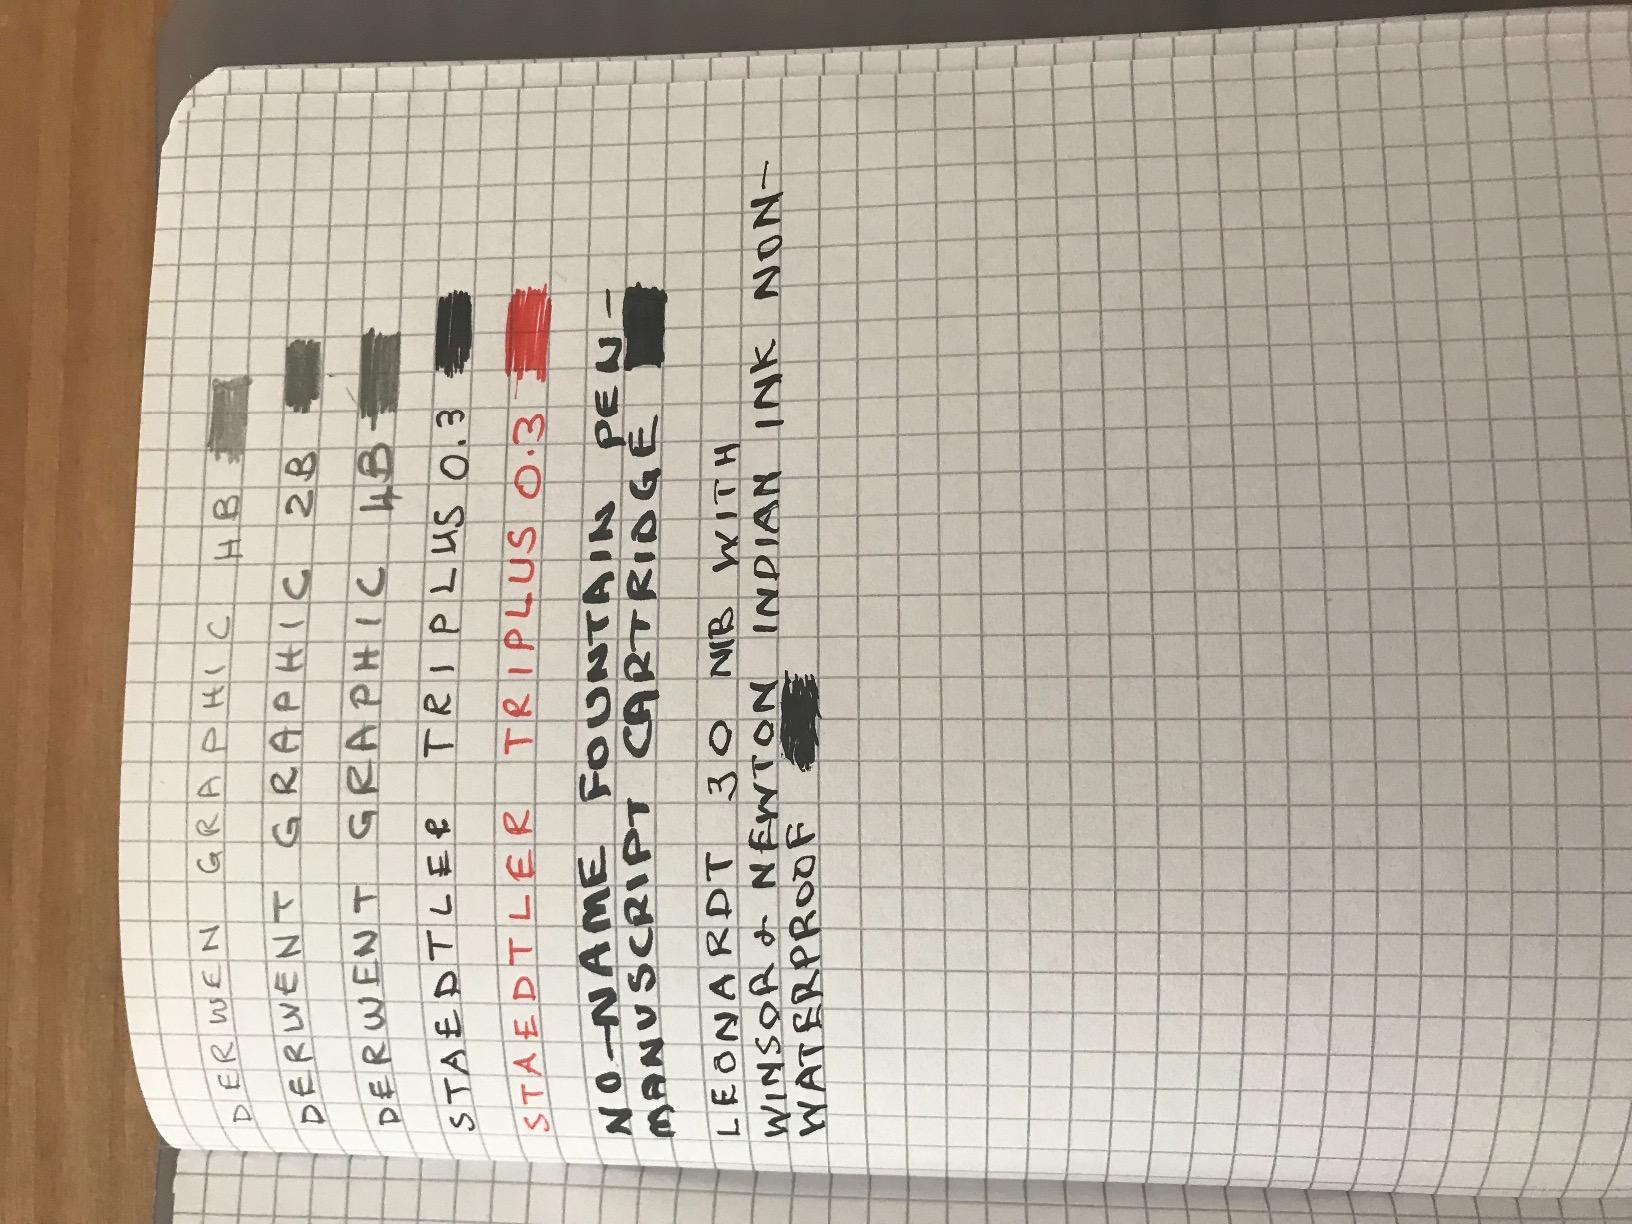 DERWEN GRAPHIC HB
DERWENT GRAPHIC 2B
DERWENT GRAPHIC 4B
STAEDTLER TRIPLUS 0.3
STAEDTLER TRIPLUS 0.3
NO-NAME FOUNTAIN PEN-
MANUSCRIPT CARTRIDGE
LEONARDT 30 NIB WITH
WINSOR & NEWTON INDIAN INK NON-
WATERPROOF